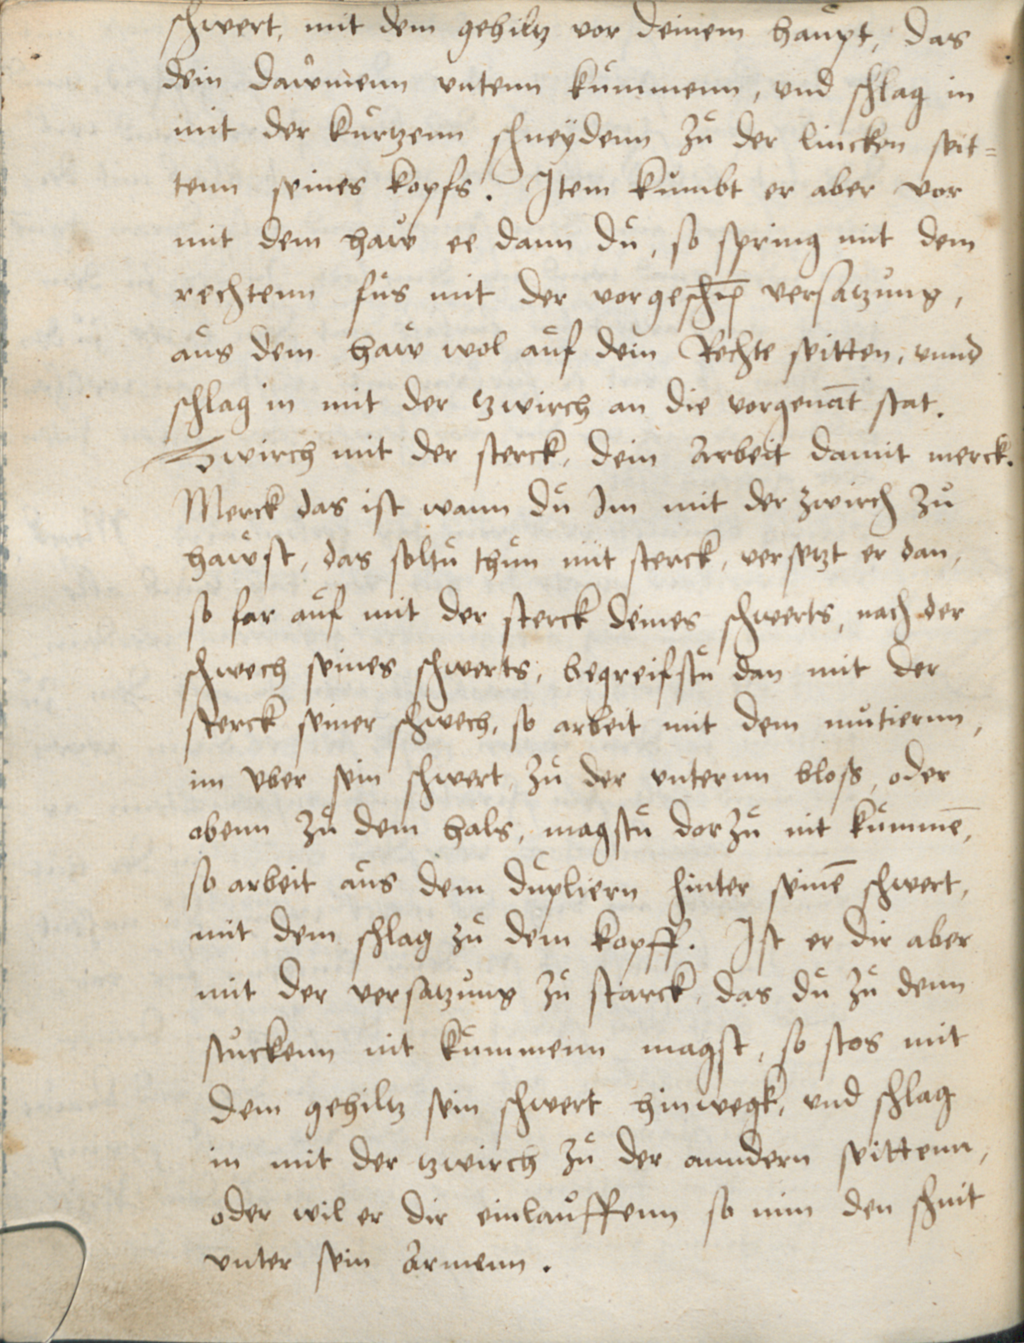 schwert, mit dem gehiltz vor deinem haupt, das
dein dawmenn vntenn kummenn, vnd schlag in
mit der kurtzenn schneydenn zů der lincken seit=
tenn seines kopfs. Item kumbt er aber vor
mit dem haw ee dann du, so spring mit dem
rechtenn fus mit der vorgeschr̄ versatzung,
aus dem haw wol auf dein Rechte seitten, vnnd
schlag in mit der tzwirch an die vorgenāt stat.
Zwirch mit der sterck, dein Arbeit damit merck.
Merck das ist wann du Im mit der zwirch zů
hawst, das soltu thun mit sterck, versetzt er dan,
so far auf mit der sterck deines schwerts, nach der
schwech seines schwerts, begreifstu dan mit der
sterck seiner schwech, so arbeit mit dem mutiernn,
im vber sein schwert, zů der vnternn blosß, oder
obenn zů dem hals, magstu dorzů nit kummē,
so arbeit aus dem dupliern hinter seinē schwert,
mit dem schlag zů dem kopff. Ist er dir aber
mit der versatzung zů starck, das du zů denn
stuckenn nit kummenn magst, so stos mit
dem gehiltz sein schwert hinwegk, vnd schlag
in mit der tzwirch zů der anndern seittenn,
oder wil er dir einlauffenn so nim den schnit
vnter sein Armenn.